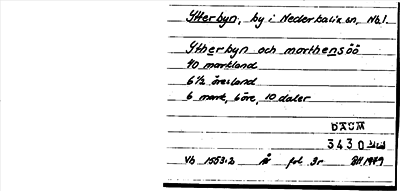 Ytterbyn, by i Nederkalix sn, Nb l.
Ytherbyn och morthensöö
40 markland
6 1/2 öresland
6 mark, 6 öre, 10 daler
DAUM
3430
Vb 1553:2 fol 3r BH 1979